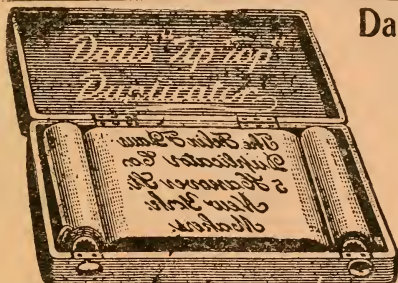 Da
Daus "Tip Top"
Duplicator
The Felix F. Daus
Duplicator Co
5 Hanover St
New York.
Makers.